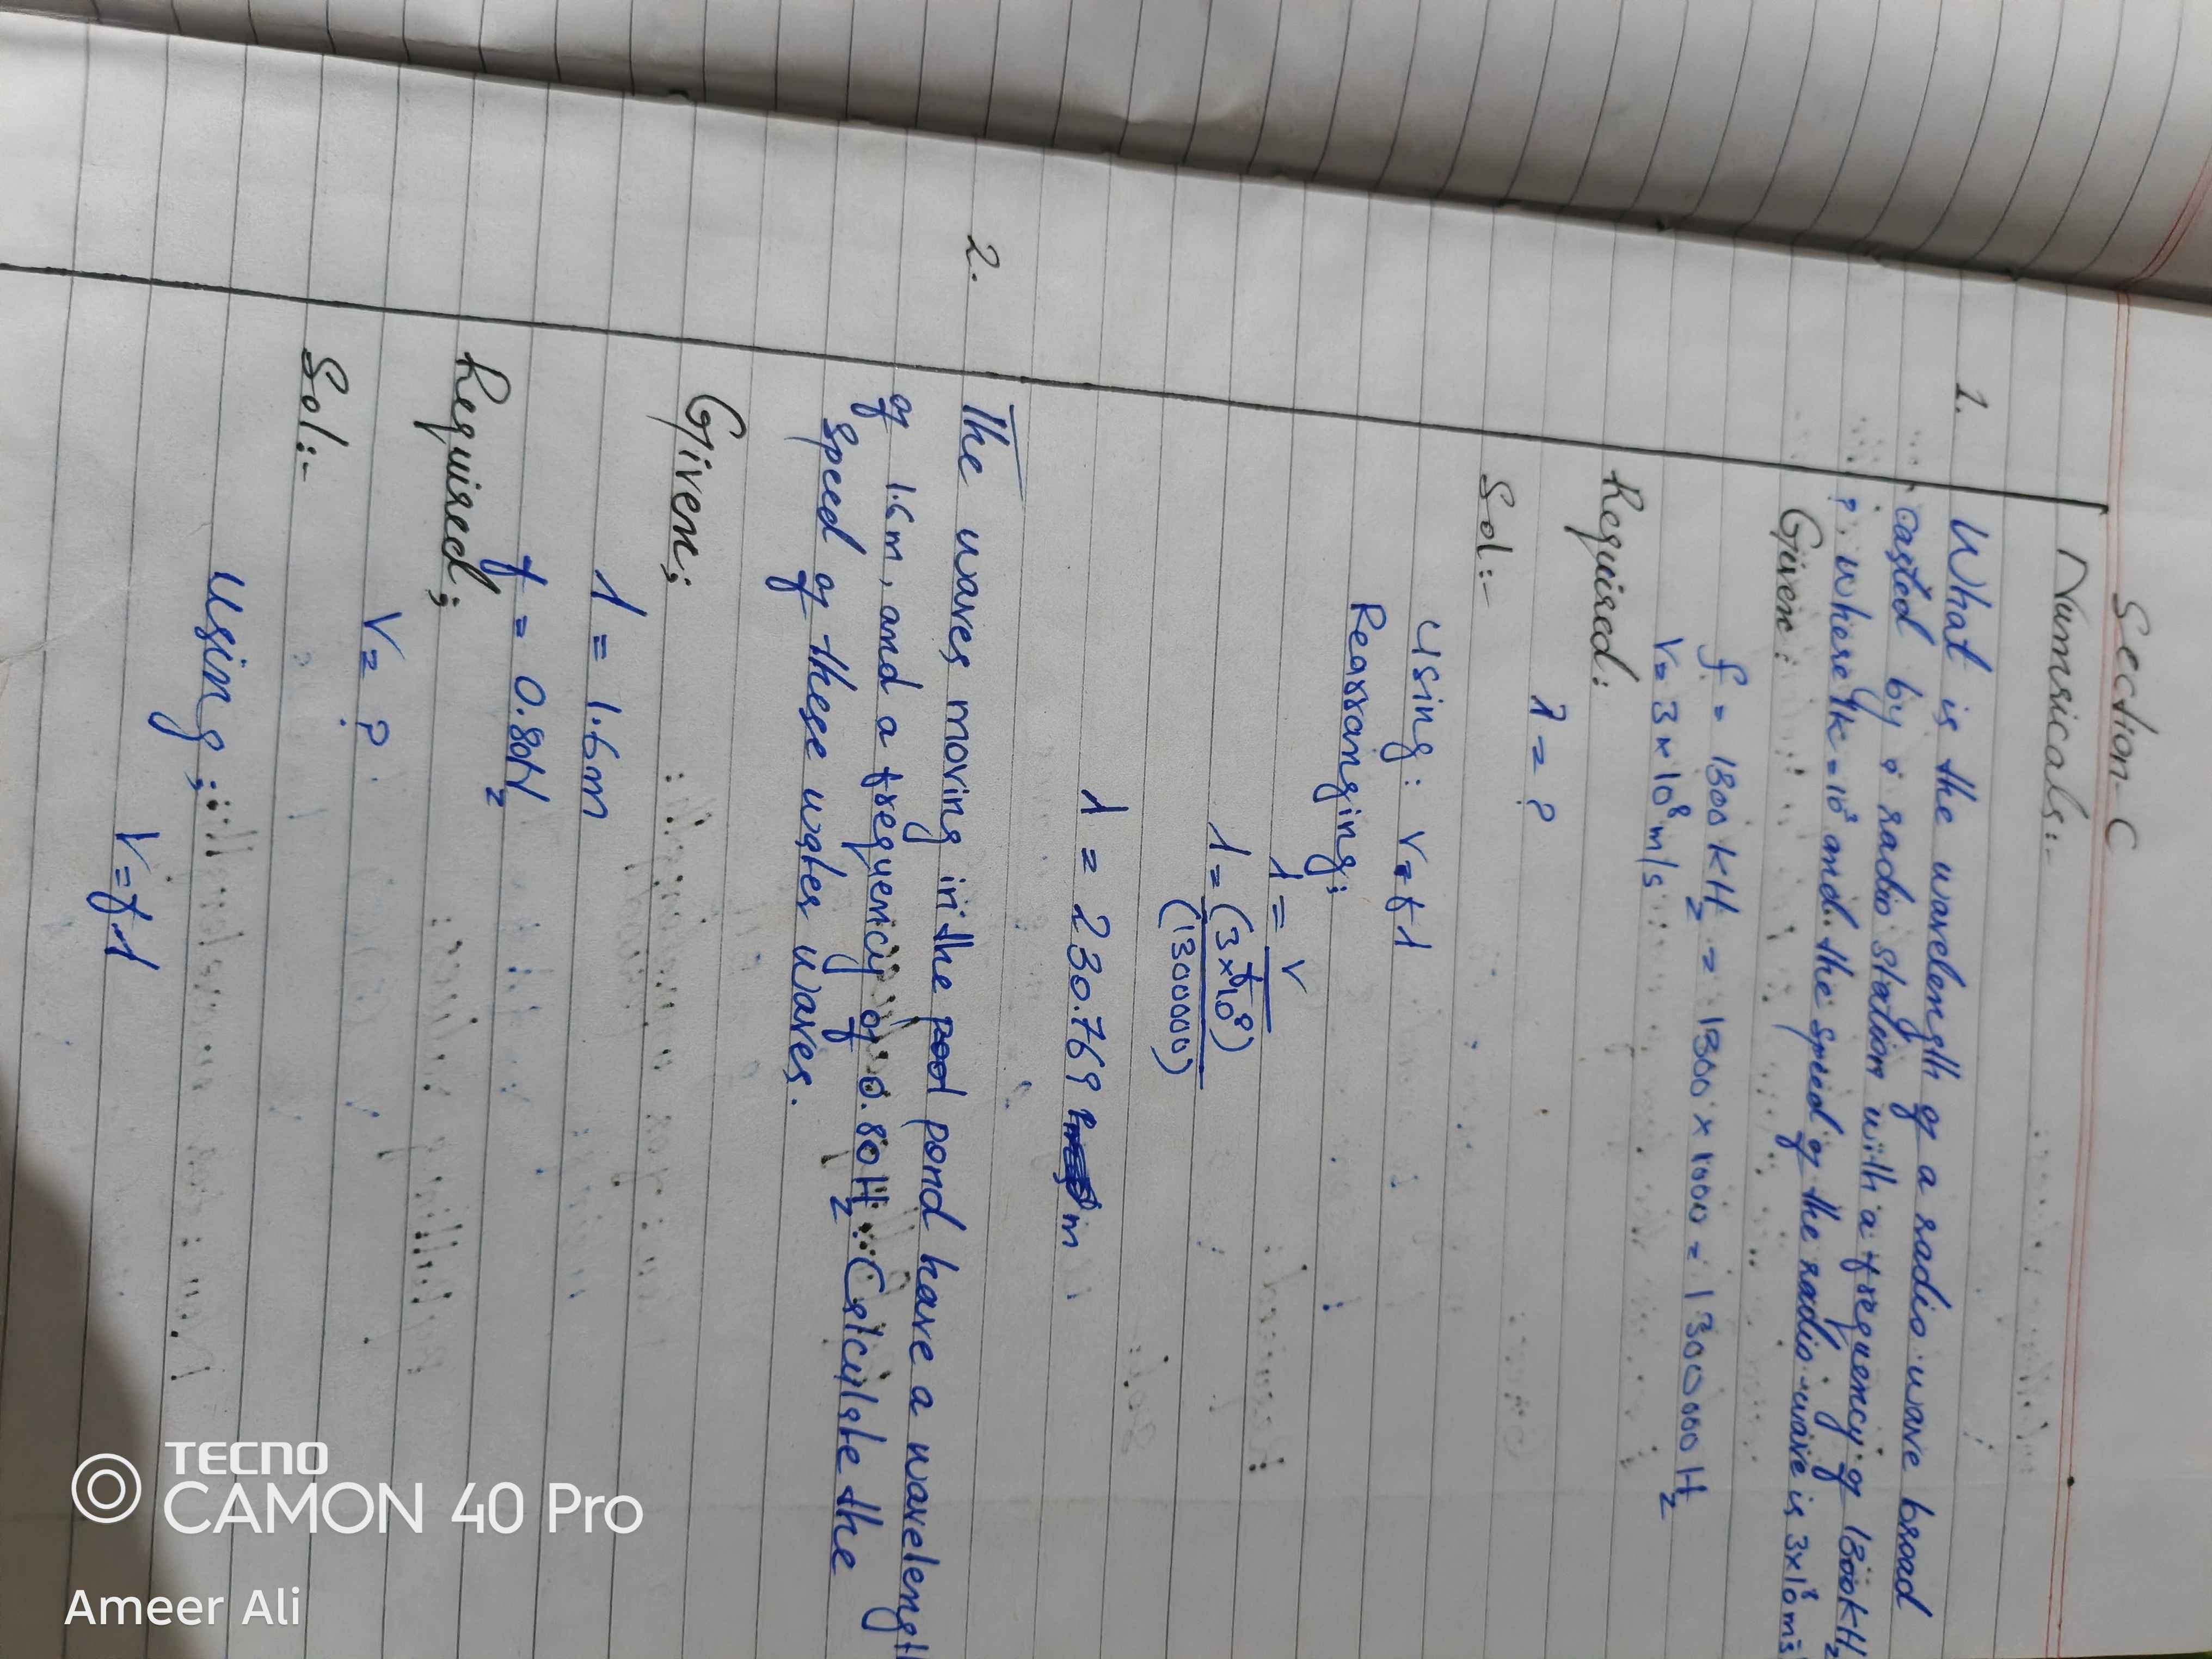 Section-C
Numricals:-
1. What is the wavelength of a radio wave broad
casted by a radio station with a frequency of 1300KHz
? where 1k = 10³ and the speed of the radio wave is 3x10⁸ms⁻
Given:
f = 1300 KHz = 1300 × 1000 = 1300000 Hz
V= 3 × 10⁸ m/s
Required:
λ = ?
Sol:-
Using: V=fλ
Rearranging;
λ = V/f
λ = (3×10⁸)/(1300000)
λ = 230.769 m
2. The waves moving in the pool pond have a wavelength
of 1.6m, and a frequency of 0.80Hz. Calculate the
speed of these water waves.
Given;
λ = 1.6m
f = 0.80Hz
Required;
V= ?
Sol:-
Using;
V=fλ
TECNO
CAMON 40 Pro
Ameer Ali